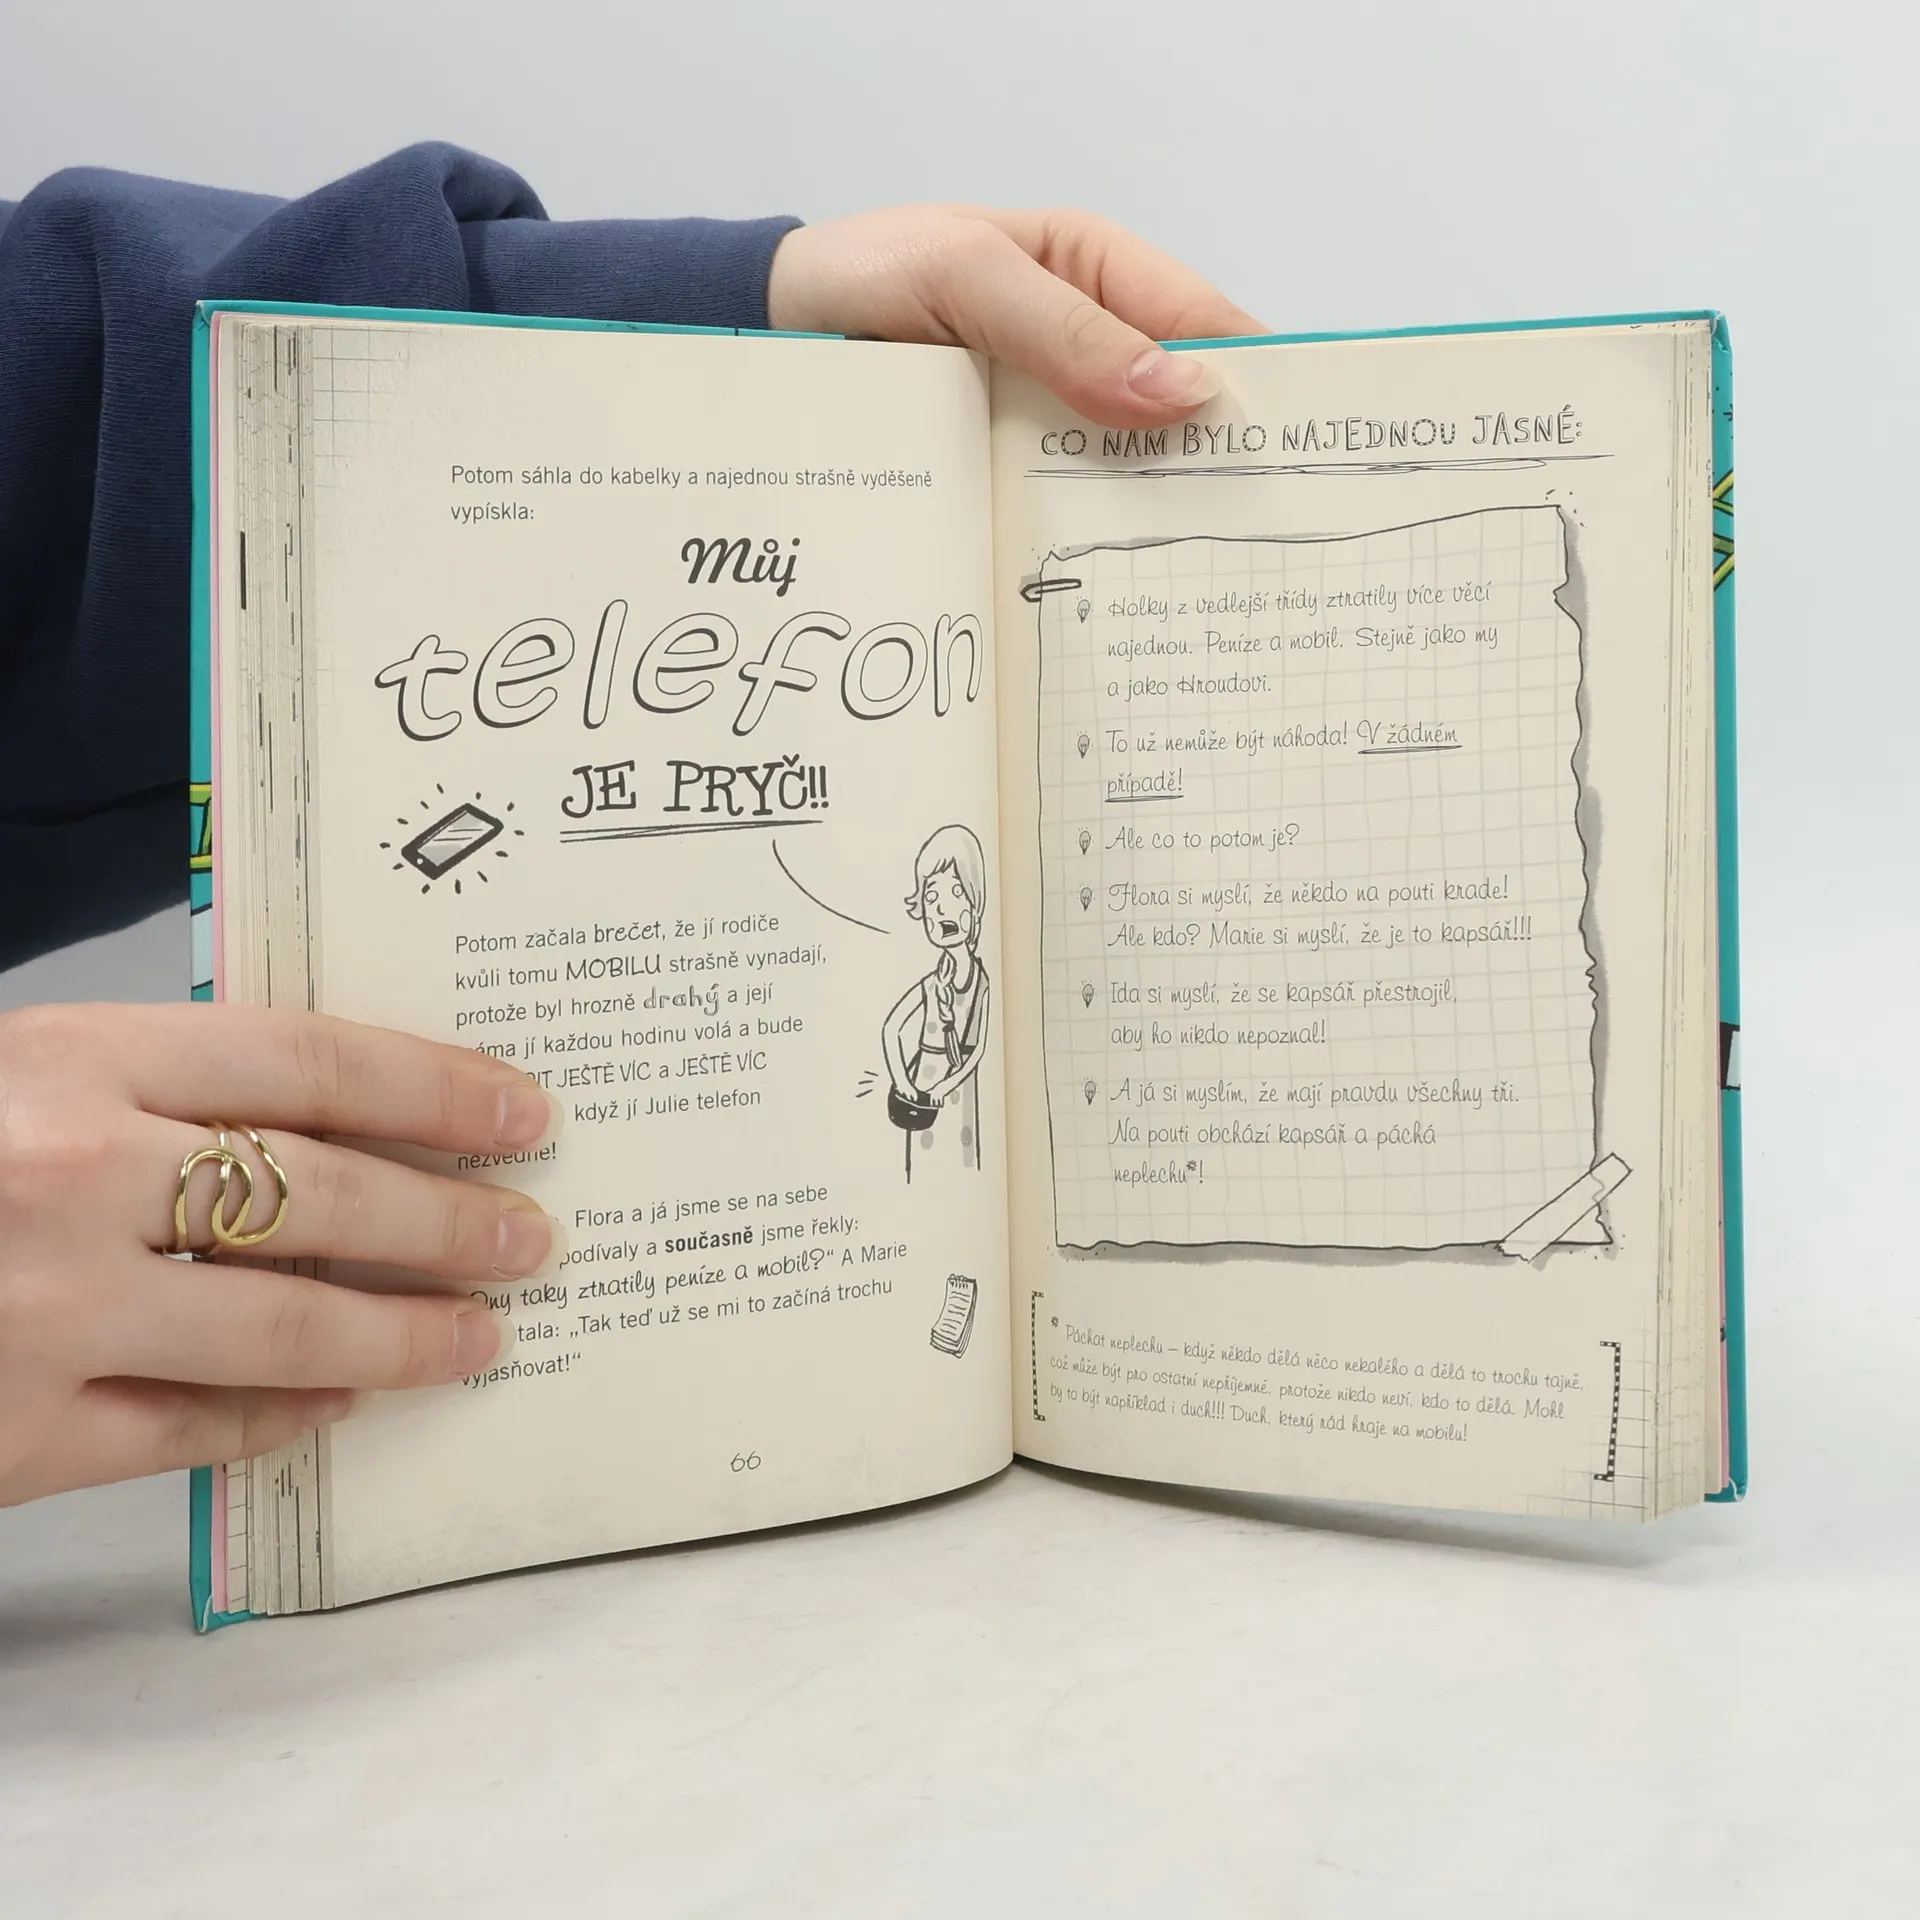 Potom sáhla do kabelky a najednou strašně vyděšeně
vypískla:
Můj
telefon
JE PRYČ!!
Potom začala brečet, že jí rodiče
kvůli tomu MOBILU strašně vynadají,
protože byl hrozně drahý a její
máma jí každou hodinu volá a bude
JEŠTĚ VÍC a JEŠTĚ VÍC
když jí Julie telefon
nezvedne!
Flora a já jsme se na sebe
podívaly a současně jsme řekly:
„Ony taky ztratily peníze a mobil?“ A Marie
„Tak teď už se mi to začíná trochu
vyjasňovat!“
66
CO NÁM BYLO NAJEDNOU JASNÉ:
Holky z vedlejší třídy ztratily více věcí
najednou. Peníze a mobil. Stejně jako my
a jako Hroudovi.
To už nemůže být náhoda! V žádném
případě!
Ale co to potom je?
Flora si myslí, že někdo na pouti krade!
Ale kdo? Marie si myslí, že je to kapsář!!!
Ida si myslí, že se kapsář přestrojil,
aby ho nikdo nepoznal!
A já si myslím, že mají pravdu všechny tři.
Na pouti obchází kapsář a páchá
neplechu*!
* Páchat neplechu – když někdo dělá něco nekalého a dělá to trochu tajně,
což může být pro ostatní nepříjemné, protože nikdo neví, kdo to dělá. Mohl
by to být například i duch!!! Duch, který rád hraje na mobilu!